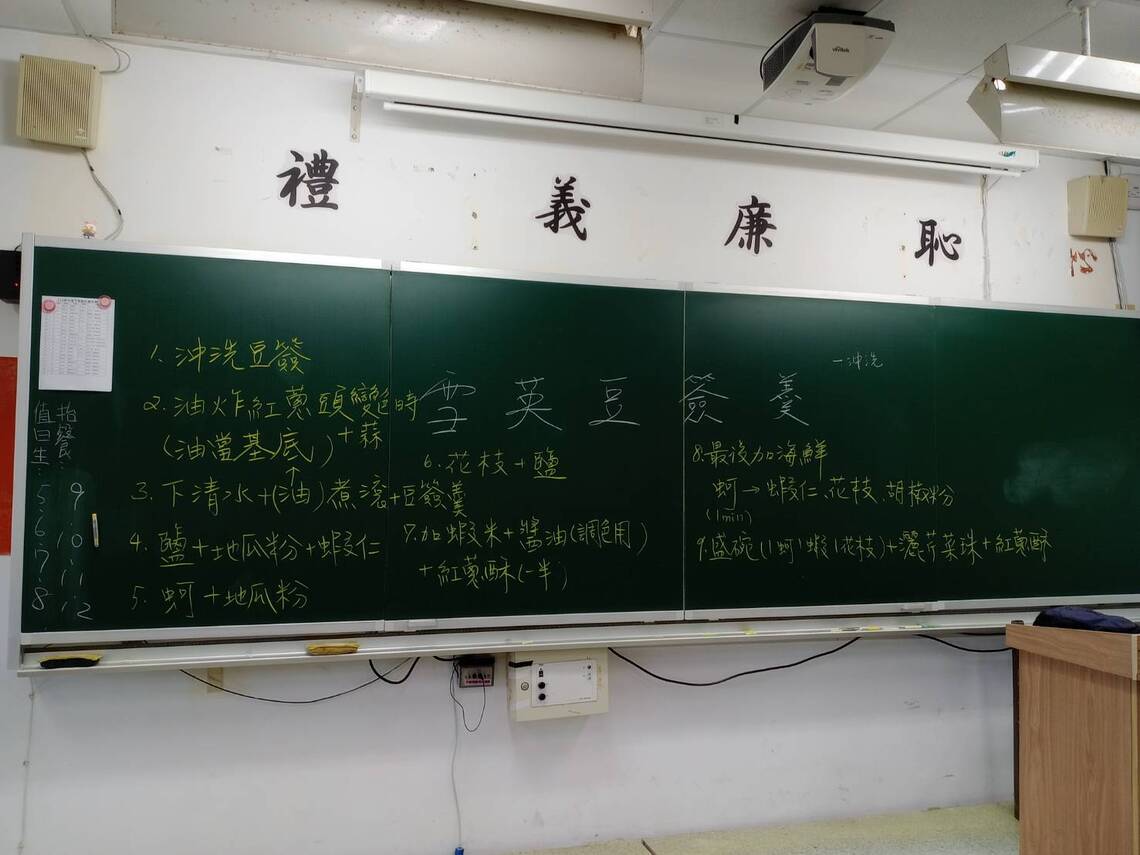 vivitek
禮 義 廉 恥
一沖洗
雪英豆簽羹
1. 沖洗豆簽
2. 油炸紅蔥頭變色時
(油當基底) + 蒜
3. 下清水+(油)煮滾+豆簽羹
4. 鹽+地瓜粉+蝦仁
5. 蚵+地瓜粉
6. 花枝+鹽
7. 加蝦米+醬油(調色用)
+紅蔥酥(一半)
8. 最後加海鮮
蚵→蝦仁、花枝、胡椒粉
(1min)
9. 盛碗(1蚵1蝦1花枝)+灑芹菜珠+紅蔥酥
值日生:
5.
6.
7.
8.
抬餐:
9
10
11
12